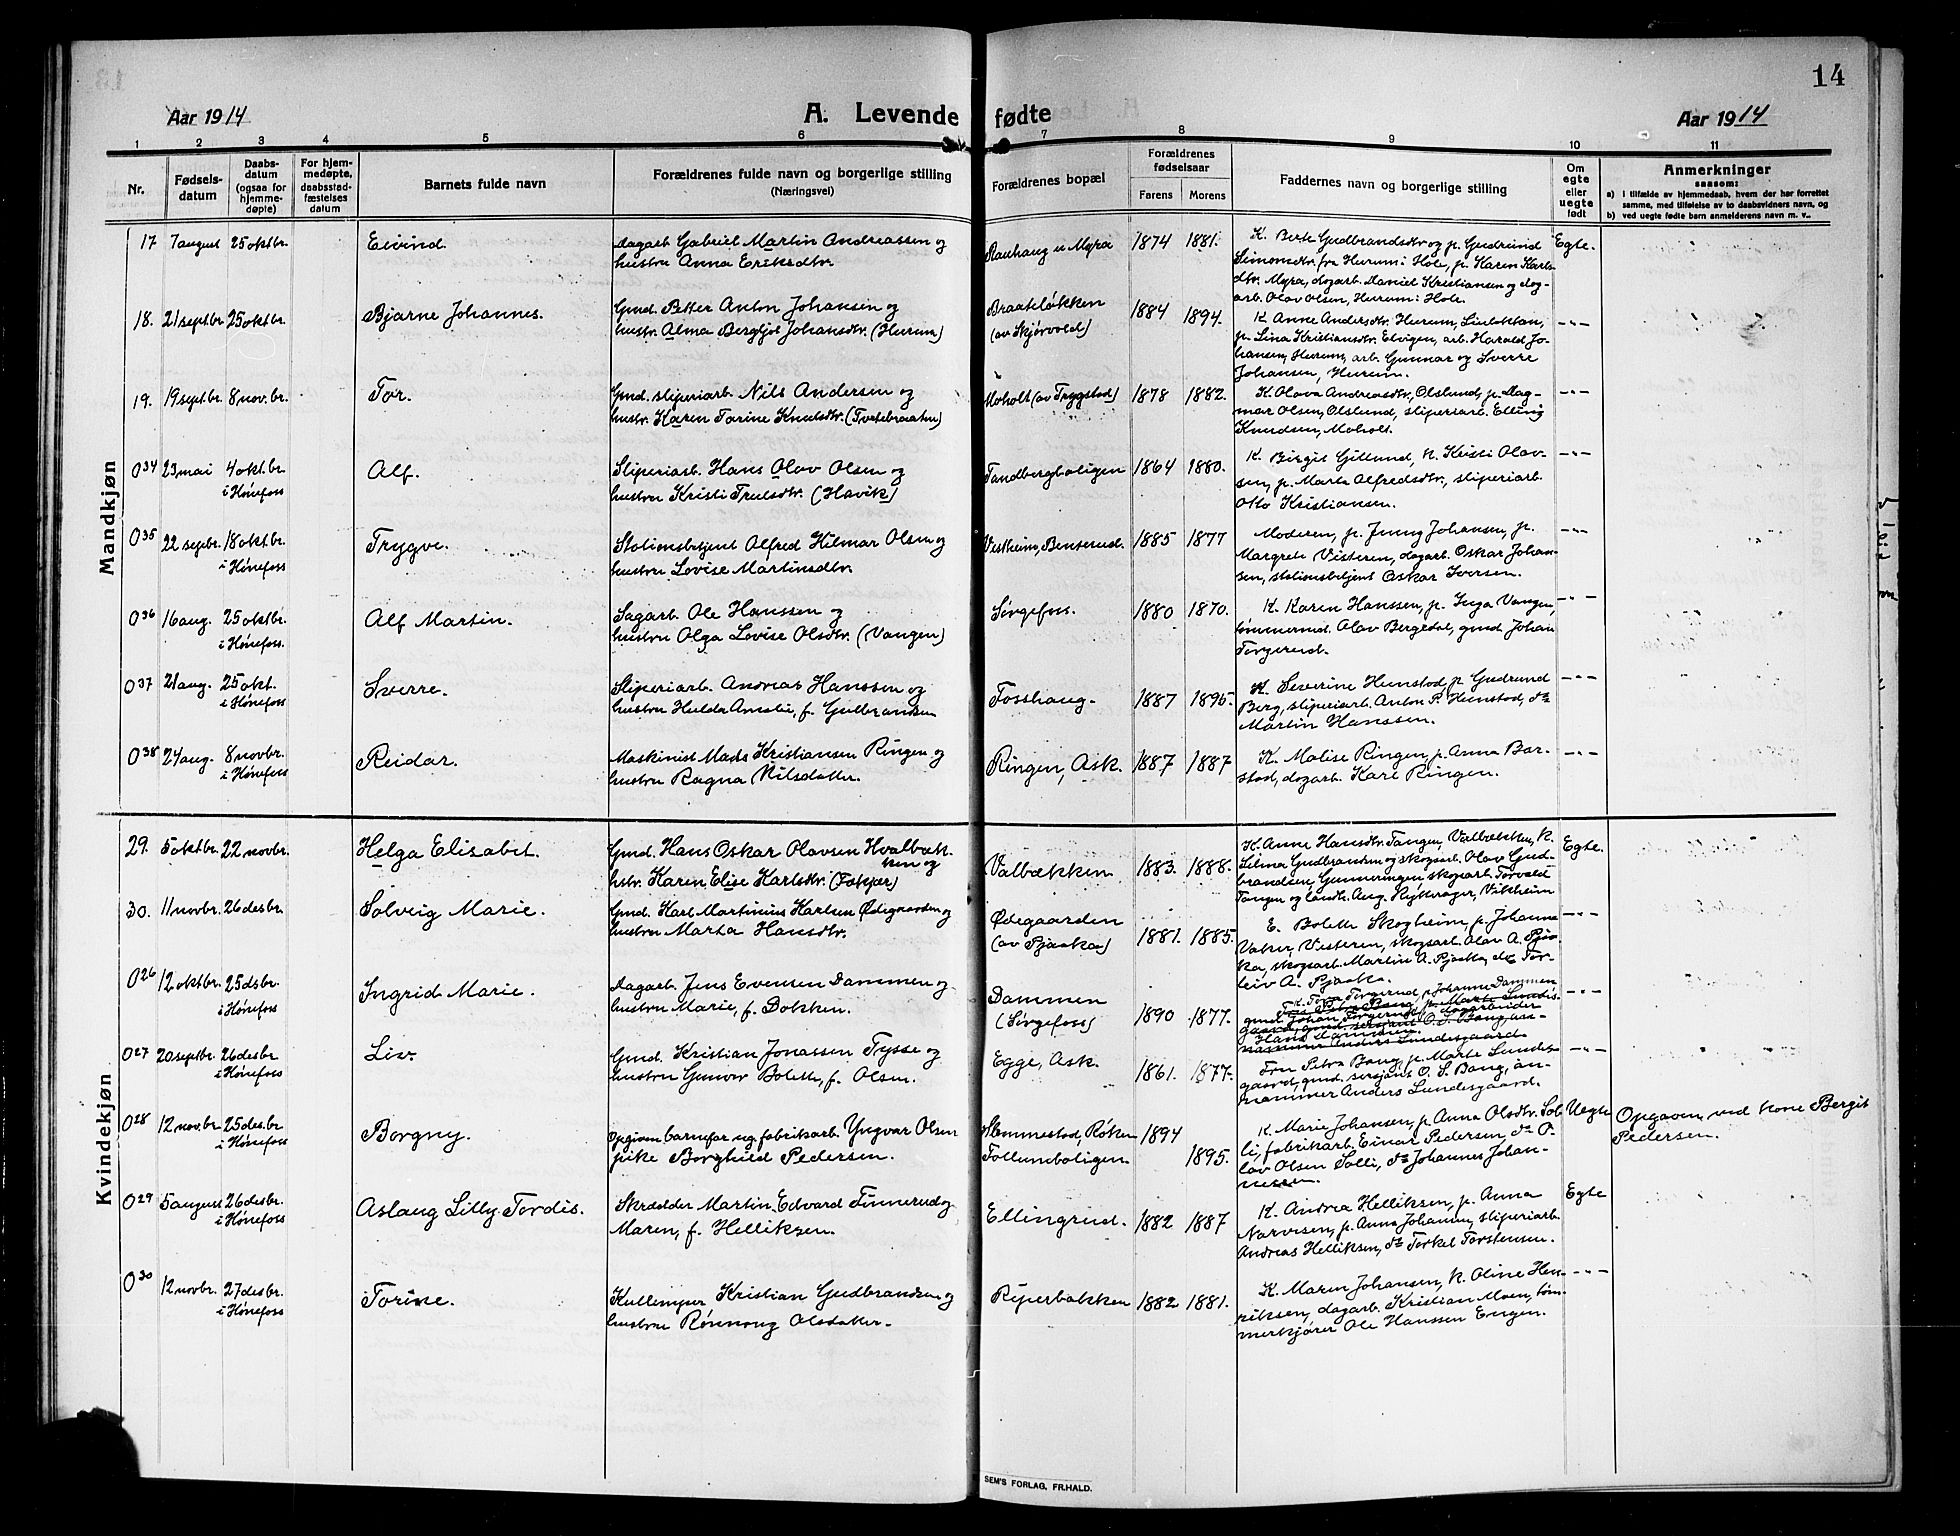 14
Aar 1914
A. Levende fødte
Aar 1914
1 2 3 4 5 6 7 8 9 10 11
Nr.
Fødsels-
datum
Daabs-
datum
(ogsaa for
hjemme-
døpte)
For hjem-
medøpte,
daabsstad-
fæstelses
datum
Barnets fulde navn
Forældrenes fulde navn og borgerlige stilling
(Næringsvei)
Forældrenes bopæl
Forældrenes
fødselsaar
Farens Morens
Faddernes navn og borgerlige stilling
Om
egte
eller
uegte
født
Anmerkninger
saasom:
a) i tilfælde av hjemmedaab, hvem der har forrettet
samme, med tilføielse av to daabsvidners navn, og
b) ved uegte fødte barn anmelderens navn m. v..
Mandkjøn
17 7 august 25 oktbr. Eivind.
dagarb. Gabriel Martin Andreassen og
hustru Anna Eriksdtr.
1874 1881.
K. Berte Gudbrandsdtr og p. Gudrund
Simonsdtr. fra Hurum i Hole, p. Karen Karls-
dtr. Myra, dagarb. Daniel Kristiansen og dag-
arb. Olav Olsen, Hurum i Hole.
Egte.
18. 21 septbr 25 oktbr. Bjarne Johannes.
Gmd. Petter Anton Johansen og
hustr. Alma Bergljot Johansdtr. (Hurum)
Braateløkken
(av Skjørvold)
1884 1894.
K. Anne Andersdtr. Hurum,
p. Lina Kristiansdtr. Elvigen, arb. Harald Jo-
hansen, Hurum, arb. Gunnar og Sverre
Johansen, Hurum.
-"-
19. 19 septbr. 8 nov.br. Tor.
Gmd. sliperiarb. Nils Andersen og
hustr. Karen Torine Knutsdtr. (Tortebraaten)
Moholt (av Trygstad)
1878 1882.
K. Olava Andreasdtr., Olslund, p. Dag-
mar Olsen, Olslund, sliperiarb. Elling
Knudsen, Moholt.
-"-
034 23 mai 4 okt.br.
i Hønefoss
Alf.
Sliperiarb. Hans Olav Olsen og
hustru Kristi Trulsdtr. (Havik)
Tandbergboligen
1864 1880.
K. Birgit Gillund, K. Kristi Olav-
sen, p. Marta Alfredsdtr., sliperiarb.
Otto Kristiansen.
-"-
035 22 sepbr. 18 oktbr.
i Hønefoss
Trygve.
Stationsbetjent Alfred Hilmar Olsen og
hustru Lovise Martinsdtr.
Vestheim, Benterud.
1885 1877
Moderen, p. Jenny Johansen, p.
Margrete Visteren, dagarb. Oskar Johan-
sen, stationsbetjent Oskar Iversen.
-"-
036 16 aug. 25 oktbr.
i Hønefoss.
Alf Martin.
Sagarb. Ole Hanssen og
hustru Olga Lovise Olsdtr. (Vangen)
Sørgefoss.
1880 1870.
K. Karen Hanssen, p. Inga Vangen,
tømmermd. Olav Bergedal, gmd. Johan
Torgerud.
-"-
037 21 aug. 25 okt.
i Hønefoss
Sverre.
Sliperiarb. Andreas Hanssen og
hustru Hulda Amalie, f. Gulbrandsen
Fosshaug.
1887 1895.
K. Severine Hunstad, p. Gudrund
Berg, sliperiarb. Anton P. Hunstad, do
Martin Hanssen.
-"-
038 24 aug. 8 novbr.
i Hønefoss
Reidar.
Maskinist Mads Kristiansen Ringen og
hustru Ragna Nilsdatter.
Ringen, Ask.
1887 1887
K. Malise Ringen, p. Anna Bar-
stad, dagarb. Karl Ringen.
-"-
Kvindekjøn
29. 5 oktbr. 22 novbr. Helga Elisabet.
Gmd. Hans Oskar Olavsen Hvalbæk-
ken og
hstr. Karen Elise Karlsdtr. (Fækjær)
Valbækken
1883. 1888.
K. Anne Hansdtr. Tangen, Valbækken, K.
Selma Gudbrandsen og skogsarb. Olav Gud-
brandsen, Gunneringen skogsarb. Torvald
Tangen og landh. Aug. Vikheim
Egte.
30. 11 novbr. 26 desbr. Solveig Marie.
Gmd. Karl Martinius Karlsen Ødegaarden og
hustru Marta Hansdtr.
Ødegaarden
(av Pjaaka)
1881. 1885.
E. Bolette Skogheim, p. Johanne
Vaker, Visteren, skogsarb. Olav A. Pjaa-
ka, skogsarb. Martin A. Pjaaka, do Tor-
leiv A. Pjaaka.
-"-
026 12 oktbr. 25 dsbr.
i Hønefoss
Ingrid Marie.
dagarb. Jens Evensen Dammen og
hustru Marie, f. Dokken.
Dammen
(Sørgefoss)
1890 1877.
K. Tora Torgerud, p. Johanne Dammen
gmd. Johan Torgerud, dagarbeider
Hans Dammen.
-"-
027 20 septbr. 26 desbr
i Hønefoss
Liv.
Gmd. Kristian Jonassen Tysse og
hustru Gunvor Bolette, f. Olsen.
Egge, Ask.
1861. 1877.
Fru Petra Bang, p. Marte Lundes-
gaard, gmd. sersjant O. S. Bang, an-
nammer Anders Lundesgaard.
-"-
028 12 nov.br. 25 des.br
i Hønefoss
Borgny.
Opgiven barnefar ug. fabrikarb. Yngvar Olsen
pike Borghild Pedersen.
Slemmestad, Røken
Follumboligen.
1894
1895.
K. Marie Johansen, p. Anna Olsdtr. Sol-
li, fabrikarb. Einar Pedersen, do O-
lav Olsen Solli, do Johannes Johan-
nessen.
Uegte
Opgaven ved kone Bergit
Pedersen.
029 5 august 26 des.br.
i Hønefoss
Aslaug Lilly Tordis.
Skrædder Martin Edvard Finnerud og
Maren, f. Helliksen.
Ellingrud.
1882 1887
K. Andrea Helliksen, p. Anna
Narvesen, p. Anna Johansen, sliperiarb.
Andreas Helliksen, do Torkel Torstensen.
Egte
030 12 novbr. 27 desbr.
i Hønefoss
Torine.
Kristian Gudbrandsen og
hustru Rønnaug Olsdatter.
Piperbakken
1882 1881.
K. Maren Johansen, K. Oline Hen-
riksen, dagarb. Kristian Moen, tøm-
merkjører Ole Hanssen Engen.
-"-
SEM'S FORLAG, FR.HALD.